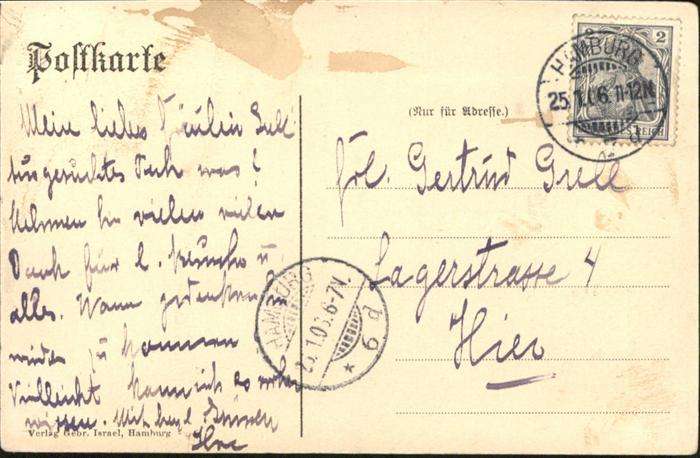 Postkarte
2
REICH
HAMBURG
25.1.06. 11-12N.
(Nur für Adresse.)
Mein liebes Fräulein Grell
was!
Nehmen Sie vielen vielen
Dank für l. Besuch u
alles. Wann gedenken Sie
wieder zu kommen
Vielleicht kann ich es vorher
wissen. Mit herzl. Grüssen
Ihre
Frl. Gertrud Grell
Lagerstrasse 4
Hier
HAMBURG
1.06. 6-7N.
* 6 d
Verlag Gebr. Israel, Hamburg